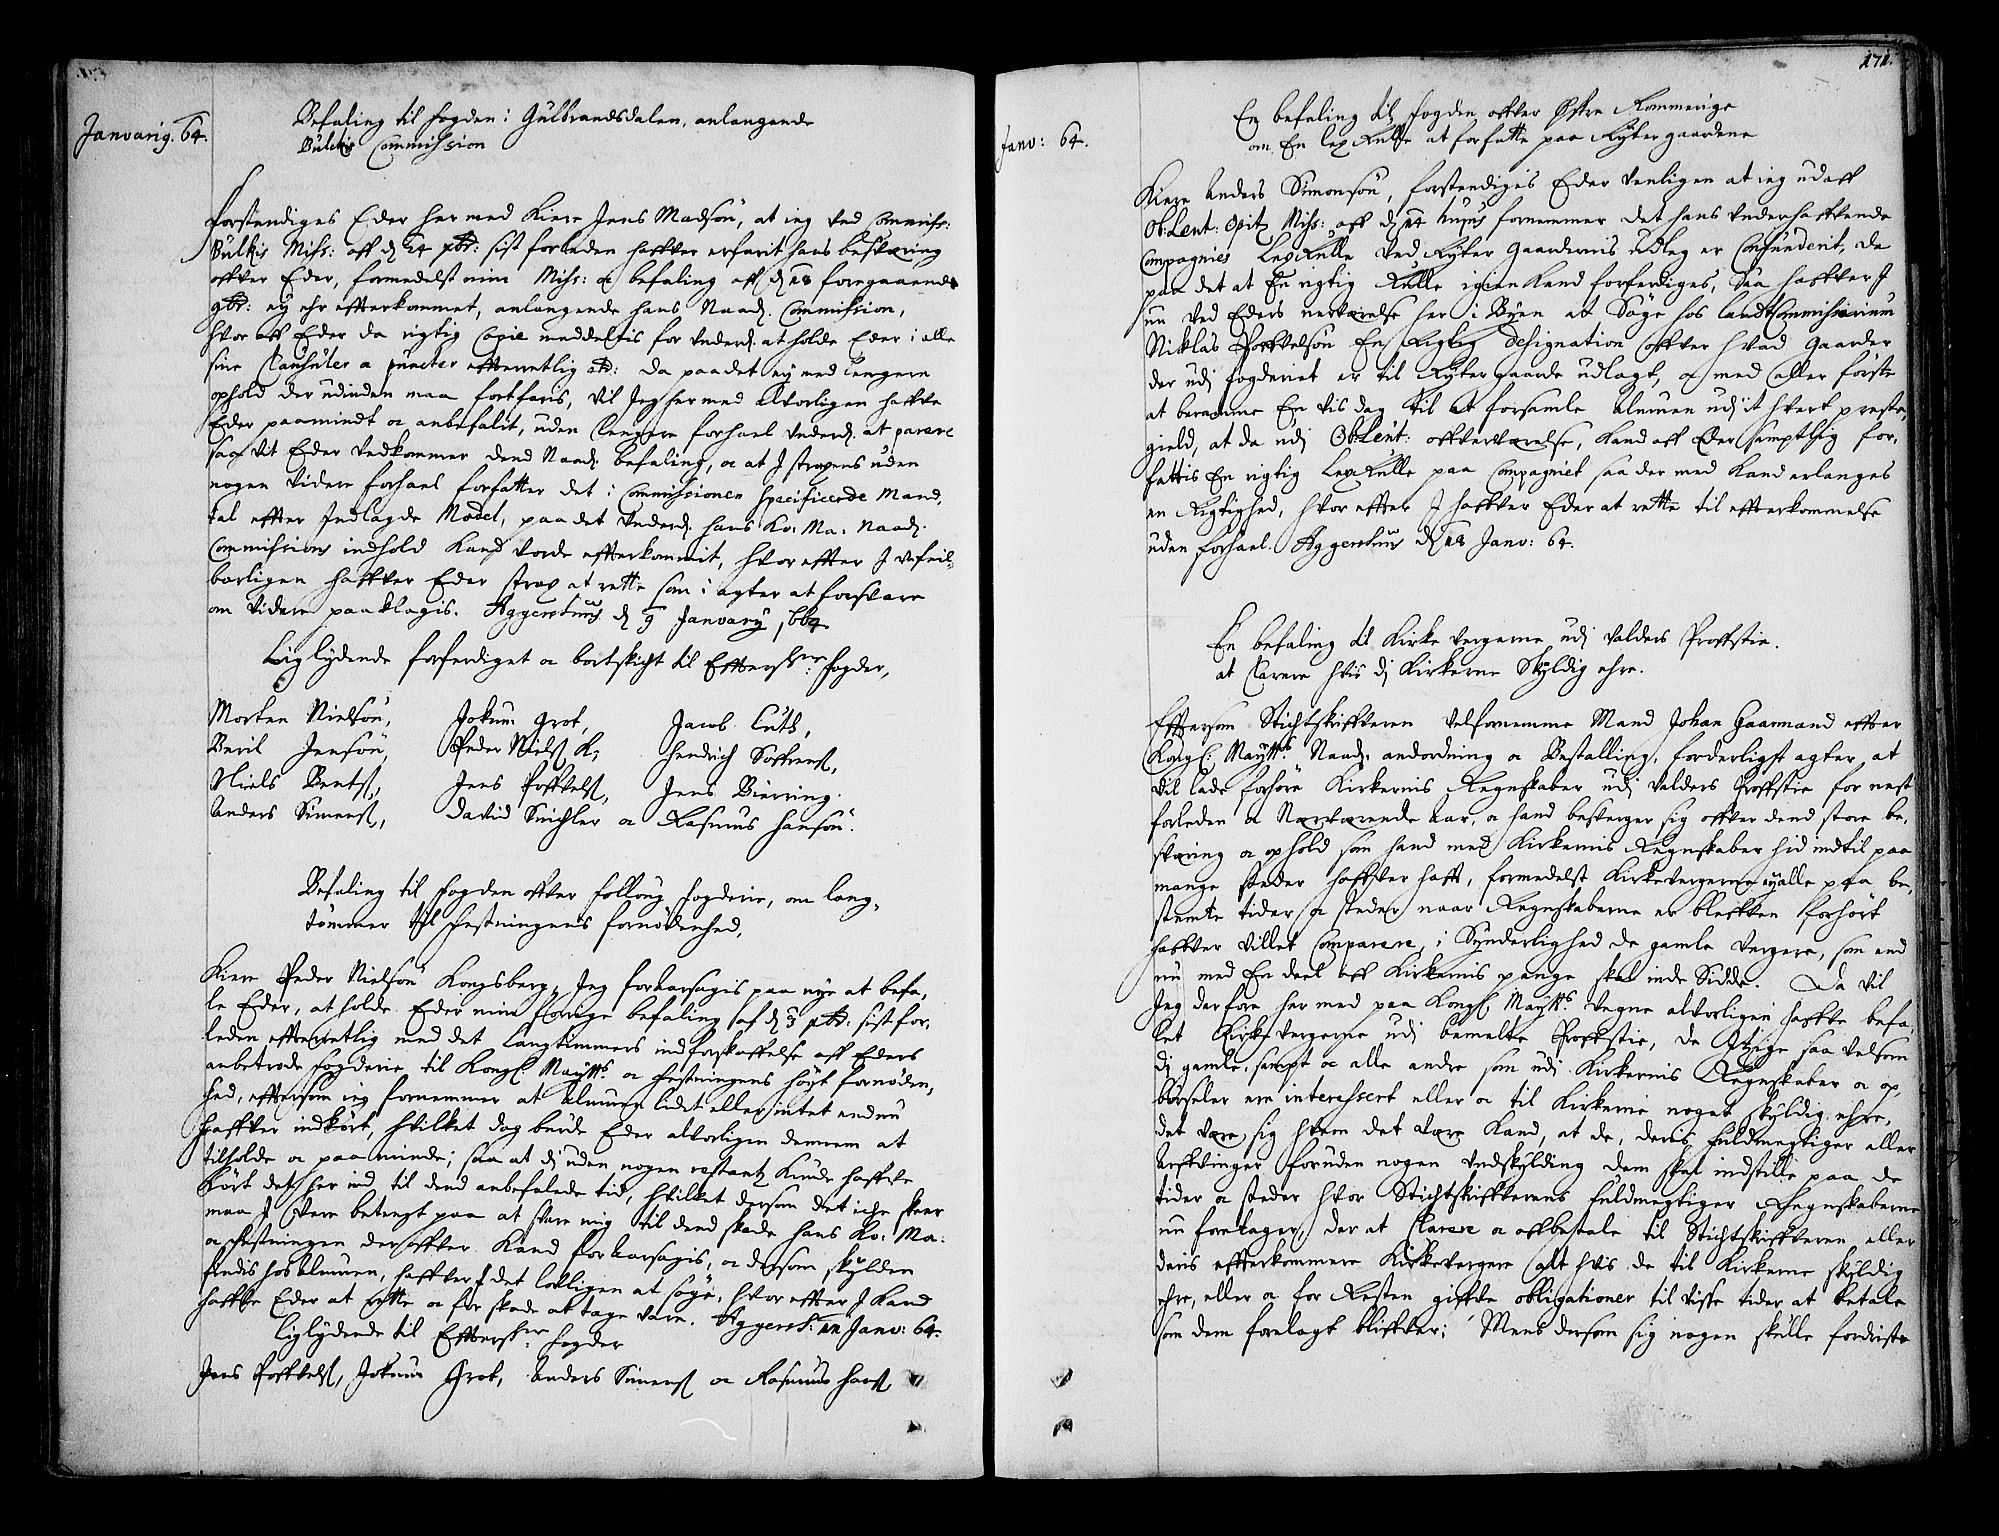 Januarij. 64.
Befaling til fogden i Gulbrandsdalen, anlangende
Bülckis Commission
Forstendiges Eder her med Kiere Jens Madsøn, at ieg ved Commiss:
Bülkis Miss: aff d 24 xbr: sist forleden haffver erfarit hans besværing
offver Eder, formedelst min Miss: oc befaling aff d 18 foregaaende
9br: ey ehr effterkommet, anlangende hans Naad. Commission,
hvor aff Eder da rigtig Copie meddeltis for underd. at holde Eder i alle
sine Clausuler oc puncter effterretlig etc: da paa det ey med lengere
ophold der udinden maa fortfaris, vil Jeg her med Alvorligen haffve
Eder paamindt oc anbefalit, uden lengere forhael underd. at parere
saa vit Eder vedkommer dend Naad. befaling, oc at I strapens uden
nogen videre forhael forfatter det i Commissionen specificerede Mand,
tal effter Indlagde Model, paa det underd. hans Ko: Ma: Naad.
Commissions indhold kand vorde effterkommit, hvor effter I ufeil-
barligen haffver Eder strax at rette som i agter at forsvare
om videre paaklagis. Aggershuus d 9 January 1664.
Liglydende forferdiget oc bortskicht til Effterskr: fogder,
Morten Nielsøn, Jokum Grot, Jacob Luth,
Beril Jensøn, Peder Niels. K: Hendrich Søffrens.,
Niels Bents., Jens Poffvels., Jens Bierring.
Anders Simens., David Sinchler oc Rasmus Hansøn.
Befaling til fogden offver Folloug fogderie, om lang-
tømmer till Festningens fornødenhed,
Kiere Peder Nielsøn Kongsberg, Jeg foraarsagis paa nye at befa,
le Eder, at holde Eder min forige befaling af d 3 xbr: sist for,
leden effterretlig med det langtimmers indforskaffelse aff Eders
anbetrode fogderie til Kongl: Maytts. oc Festningens høyt fornøden,
hed, effter som ieg fornemmer at Almuen lidet eller intet endnu
haffver indkiørt, hvilket dog burde Eder alvorligen dennem at
tilholde oc paaminde; saa at di uden nogen restantz kunde haffve
kiørt det her ind til dend anbefalede tid, hvilket dersom det iche skeer
maa I være betengt paa at svare mig til dend skade hans Ko: Ma:
oc Festningen der offver kand foraarsagis, oc dersom skylden
findis hos Almuen, haffver I det lovligen at søge, hvor effter I kand
haffve Eder at rette oc for skade at tage vare. Aggersh: 12 Janv: 64.
Liglydende til Effterskr: fogder
Jens Poffvels., Jokum Grot, Anders Simens. oc Rasmus Hans.
171.
Janv: 64.
En befaling til fogden offver Østre Rommerige
om En lex Rulle at forfatte paa Rytergaardene
Kiere Anders Simonsøn, forstendiges Eder venligen at ieg udaff
Ob:Lent: Opitz Miss: aff d 12 hujus fornemmer det hans underhaffvende
Compagnies LexRulle ved Ryter Gaardernis udleg er Confunderit, da
paa det at En rigtig Rulle igien kand forferdiges, Saa haffver I
nu ved Eders nerværelse her i Byen at søge hos landCommissarium
Niklas Poffvelsøn En Rigtig designation offver hvad Gaarder
der udj fogderiet er til Rytergaarde udlagt, oc med aller første
at beramme En vis dag til at forsamle Almuen udj it hvert preste,
gield, at da udj ObLeut: offverværelse, kand aff Eder samptlig for,
fattis En rigtig LexRulle paa Compagniet saa der med kand erlanges
en Rigtighed, hvor effter I haffver Eder at rette til effterkommelse
uden forhael. Aggershuus d 18 Janv: 64.
En befaling til Kirke vergerne udj Valders Proffstie.
at Clarere hvis dj Kirkerne Skyldig ehre.
Effterson Stichtskriffveren velfornemme Mand Johan Gaarmand effter
Kongl: Maytts. Naad. anordning oc Bestalling, forderligst agter, at
vil lade forhøre Kirkernis Regnskaber udj Valders Proffstie for nest
forleden oc Nærværende Aar, oc hand besverger sig offver dend store be,
sværing oc ophold som hand med Kirkernis Regnskaber hid indtil paa
mange steder haffver hafft, formedelst Kirkevergerne ey alle paa be,
stemte tider oc steder naar Regnskaberne er bleffven forhørt
haffver villet Comparere, i Synderlighed de gamle verger, som end
nu med En deel aff Kirkernis penge skal inde Sidde. Da vil
Jeg derfore her med paa Kongl Maytts. vegne alvorligen haffve befa,
let Kirkevergerne udj bemelte Proffstie, de Itzige saa velsom
dj gamle, sampt oc alle andre som udj Kirkernis Regnskaber oc op,
børseler ere interessert eller oc til Kirkerne noget skyldig ehre,
det være sig hvem det være kand, at de, deris fuldmegtiger eller
Arffvinger foruden nogen undskylding dem skal indstille paa de
tider oc steder hvor Stichtskriffverens fuldmegtiger Regnskaberne
nu foretager, der at Clarere oc affbetale til Stichtskriffveren eller
deris effterkommere Kirkevergere alt hvis de til Kirkerne skyldig
ehre, eller oc for Resten giffve obligationer til visse tider at betale
som dem forelagt bliffver; Mens dersom sig nogen skulle fordriste